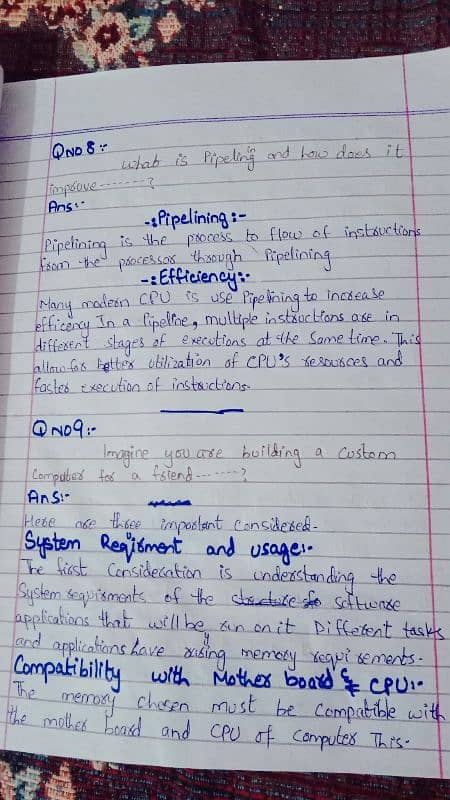 QNO.8:-
What is Pipeling and how does it
improve-------?
Ans:-
-:Pipelining:-
Pipelining is the process to flow of instructions
from the processor through Pipelining
-:Efficiency:-
Many modern CPU is use Pipelining to increase
efficency In a Pipeline, multiple instructions are in
different stages of executions at the same time. This
allow for better utilization of CPU's resources and
faster execution of instructions.
QNO9:-
Imagine you are building a custom
Computer for a friend-------?
Ans:-
Here are three important Considered-
System Reqirment and usage:-
The first Consideration is understanding the
System requirments of the software
applications that will be run on it Different tasks
and applications have memory requirements.
Compatibility with Mother board & CPU:-
The memory chosen must be Compatible with
the mother board and CPU of Computer This-